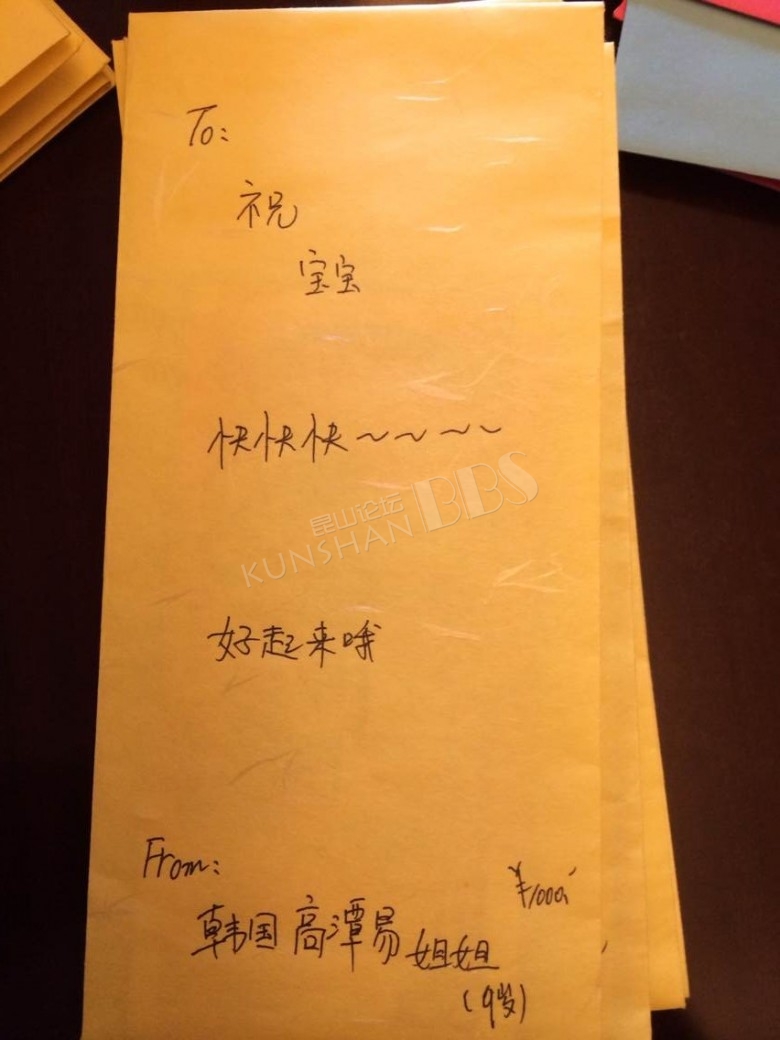 To:
祝
宝宝
快快快~~~~
昆山论坛
KUNSHAN BBS
好起来哦
From:
¥1000
韩国 高潭易 姐姐
(9岁)